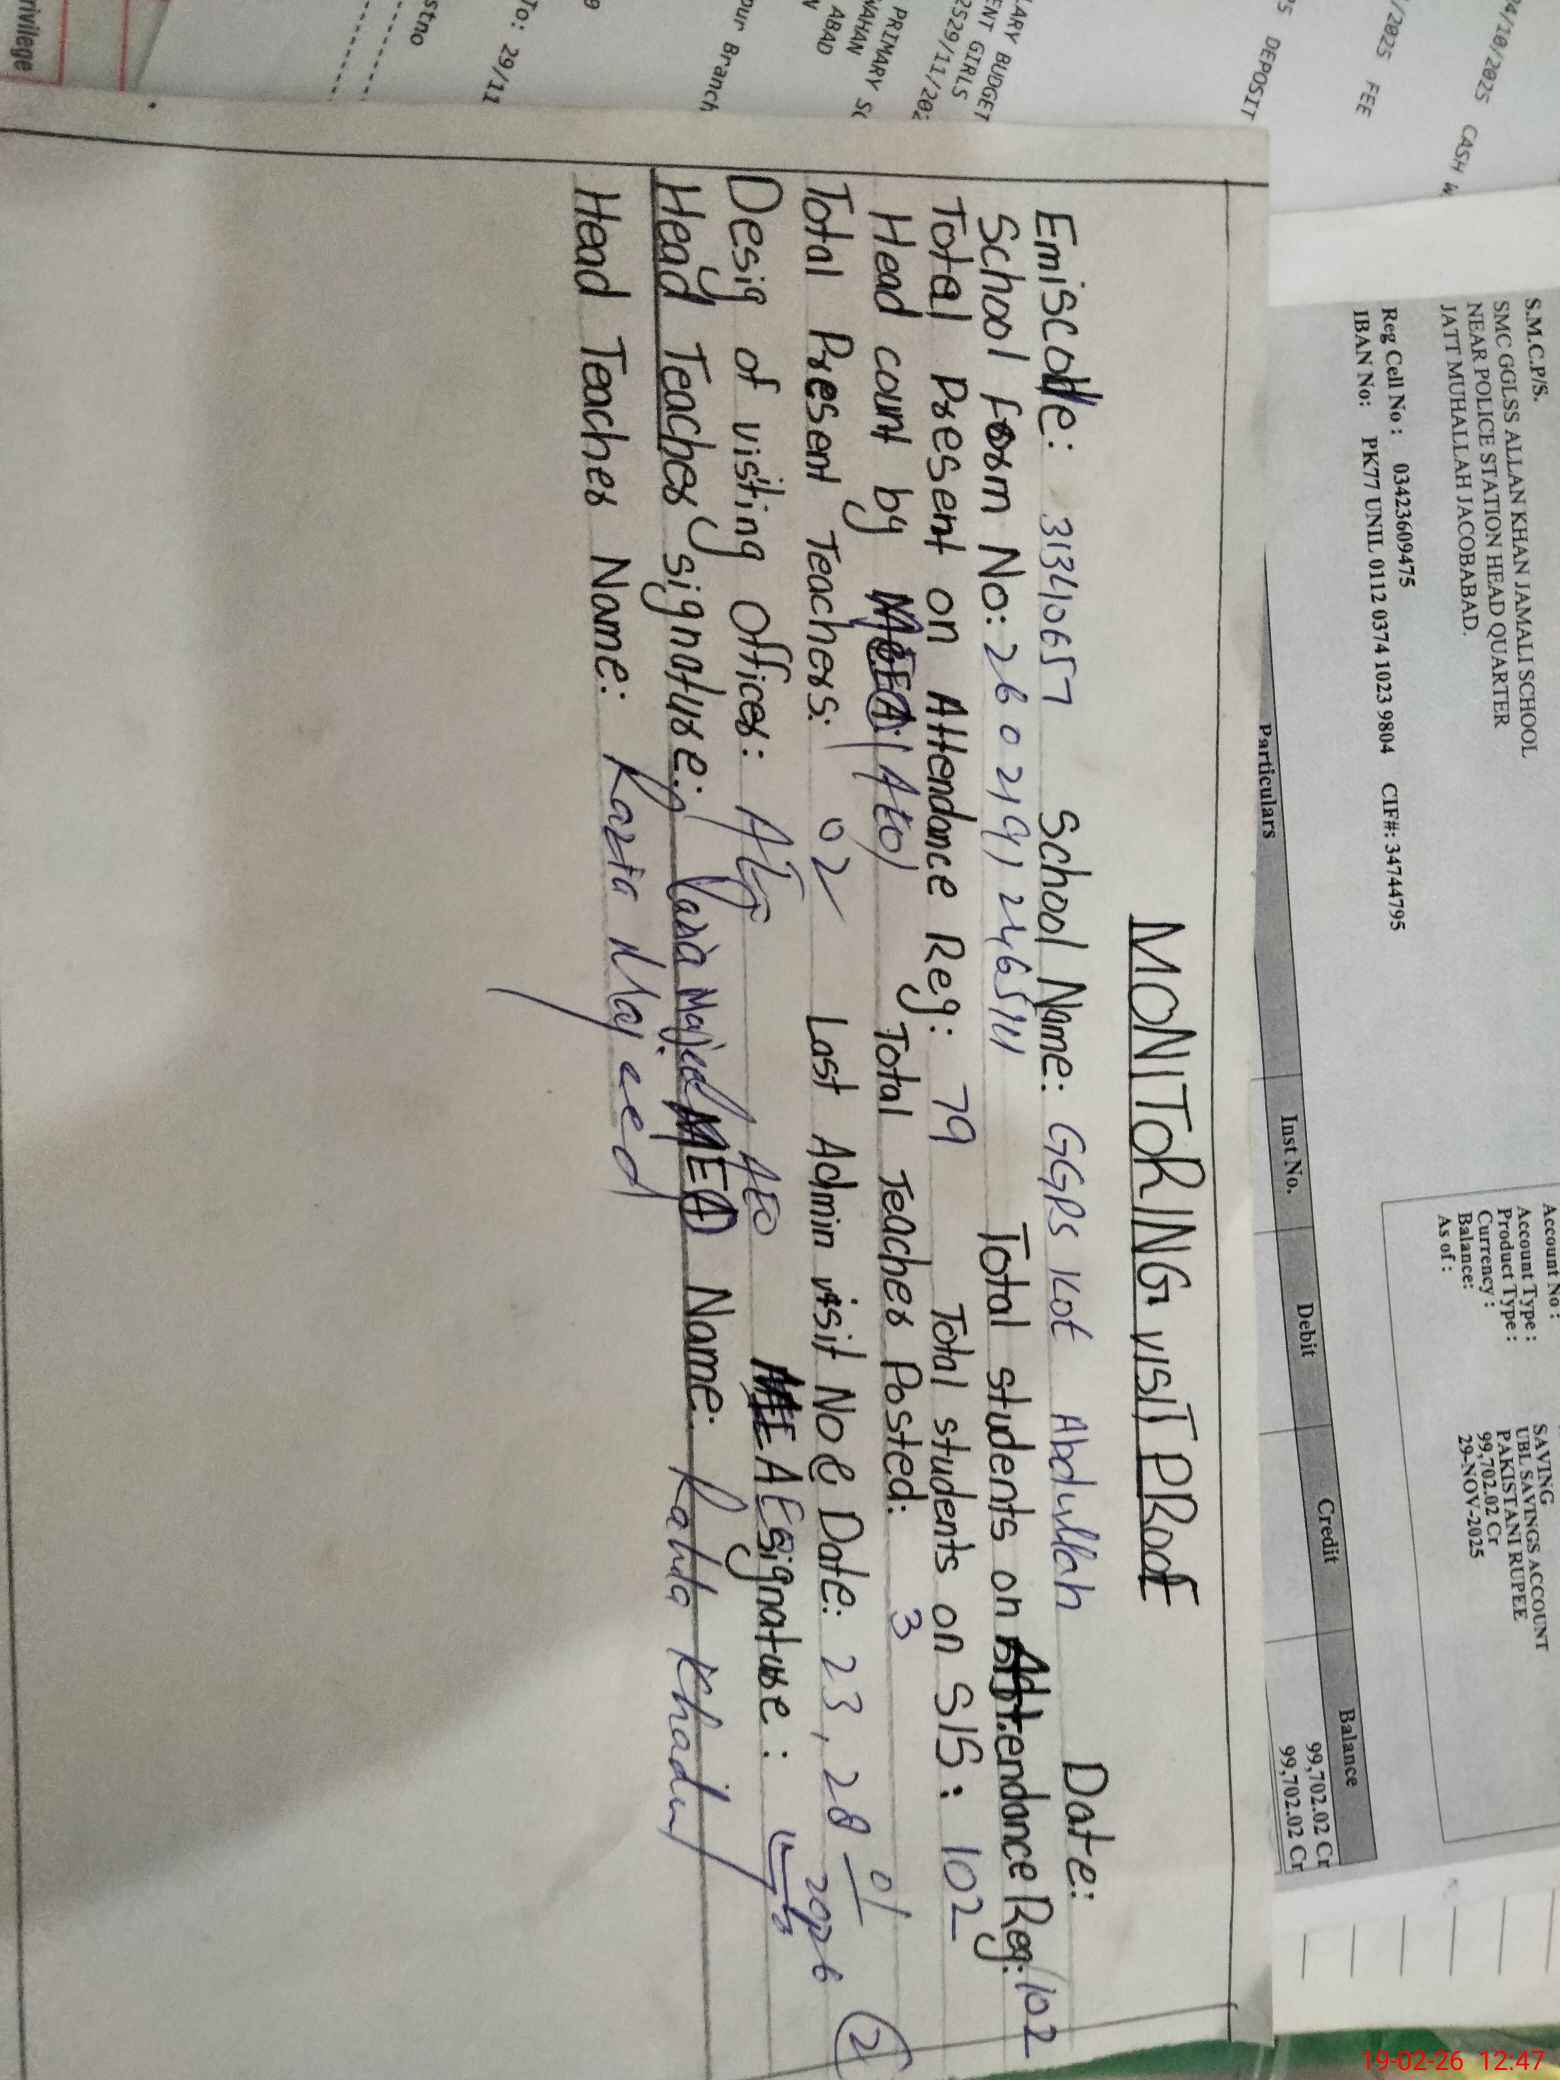 MONITORING VISIT PROOF
Emiscode: 31340657 School Name: GGPS Kot Abdullah Date:
School form No: 26021912465141 Total students on Attendance Reg: 102
Total Present on Attendance Reg: 79 Total students on SIS: 102
Head count by MEA (AEO) Total Teacher Posted: 3
Total Present Teachers: 02 Last Admin visit No & Date: 23, 28 01 2026 (2)
Desig of visiting Officer: AEO AE signature:
Head Teacher signature: Razia Majeed MEA Name: Khadim
Head Teacher Name: Razia Majeed
S.M.C.P/S.
SMC GGLSS ALLAN KHAN JAMALI SCHOOL
NEAR POLICE STATION HEAD QUARTER
JATT MUHALLAH JACOBABAD.
Reg Cell No : 03423609475
IBAN No: PK77 UNIL 0112 0374 1023 9804 CIF#: 34744795
Account No :
Account Type : SAVING
Product Type : UBL SAVINGS ACCOUNT
Currency : PAKISTANI RUPEE
Balance: 99,702.02 Cr
As of : 29-NOV-2025
Particulars Inst No. Debit Credit Balance
99,702.02 Cr
99,702.02 Cr
04/10/2025 CASH W
/2025 FEE
S DEPOSIT
ARY BUDGET
ENT GIRLS
2529/11/202
PRIMARY SC
WAHAN
ABAD
pur Branch
To: 29/11
stno
rivilege
19-02-26 12:47